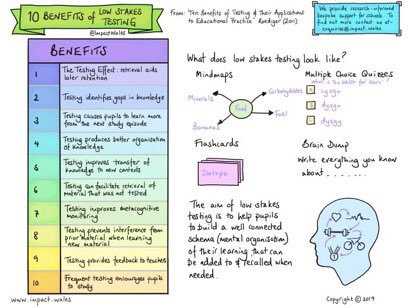 10 BENEFITS of LOW STAKES TESTING
@ImpactWales
From: "Ten Benefits of Testing & Their Applications
to Educational Practice" Roediger (2011)
We provide research-informed
bespoke support for schools. To
find out more contact us at
enquiries@impact.wales
BENEFITS
1 The Testing Effect: retrieval aids
later retention
2 Testing identifies gaps in knowledge
3 Testing causes pupils to learn more
from the next study episode
4 Testing produces better organisation
of knowledge
5 Testing improves transfer of
knowledge to new contexts
6 Testing can facilitate retrieval of
material that was not tested
7 Testing improves metacognitive
monitoring
8 Testing prevents interference from
prior material when learning
new material
9 Testing provides feedback to teachers
10 Frequent testing encourages pupils
to study
What does low stakes testing look like?
Mindmaps
Minerals
Carbohydrates
Food
Fuel
Bananas
Multiple Choice Quizzes
What is the Welsh for learn?
dysgu
dysgy
Flashcards
Isotope
Brain Dump
Write everything you know
about .......
The aim of low stakes
testing is to help pupils
to build a well connected
schema (mental organisation)
of their learning that can
be added to & recalled when
needed.
www.impact.wales
Copyright © 2019